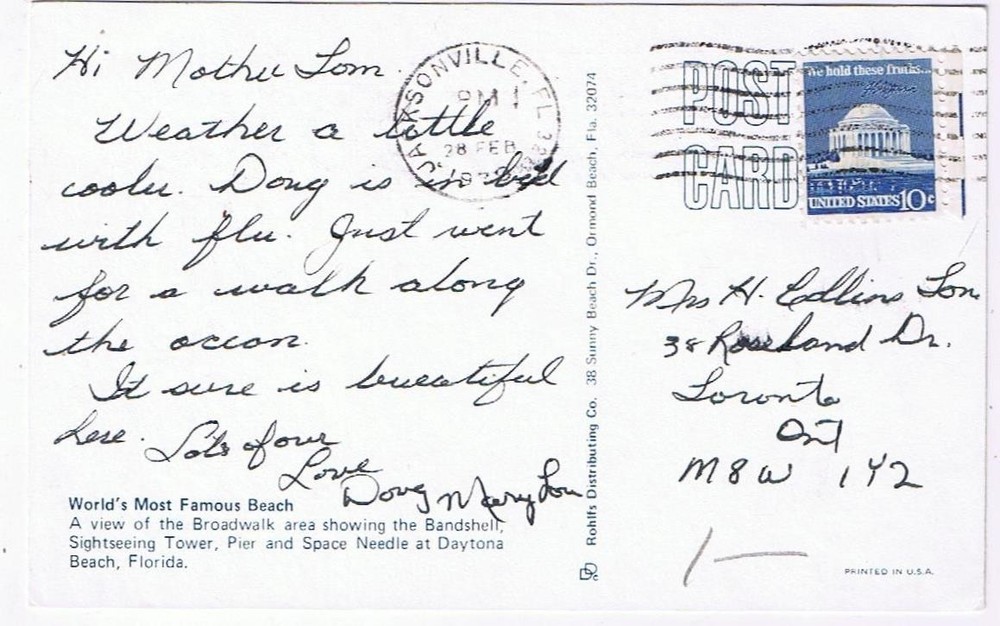 Hi Mother Tom
Weather a little
cooler. Doug is in bed
with flu. Just went
for a walk along
the ocean.
It sure is bueatiful
here. Lots of our
Love
Doug Mary Lou
World's Most Famous Beach
A view of the Broadwalk area showing the Bandshell,
Sightseeing Tower, Pier and Space Needle at Daytona
Beach, Florida.
Rohlfs Distributing Co. 38 Sunny Beach Dr., Ormond Beach, Fla. 32074
JACKSONVILLE, FL
PM
28 FEB
POST
CARD
We hold these truths...
UNITED STATES 10c
Mrs H. Collins Tom
38 Dr.
Toronto
Ont
M8W 1Y2
PRINTED IN U.S.A.